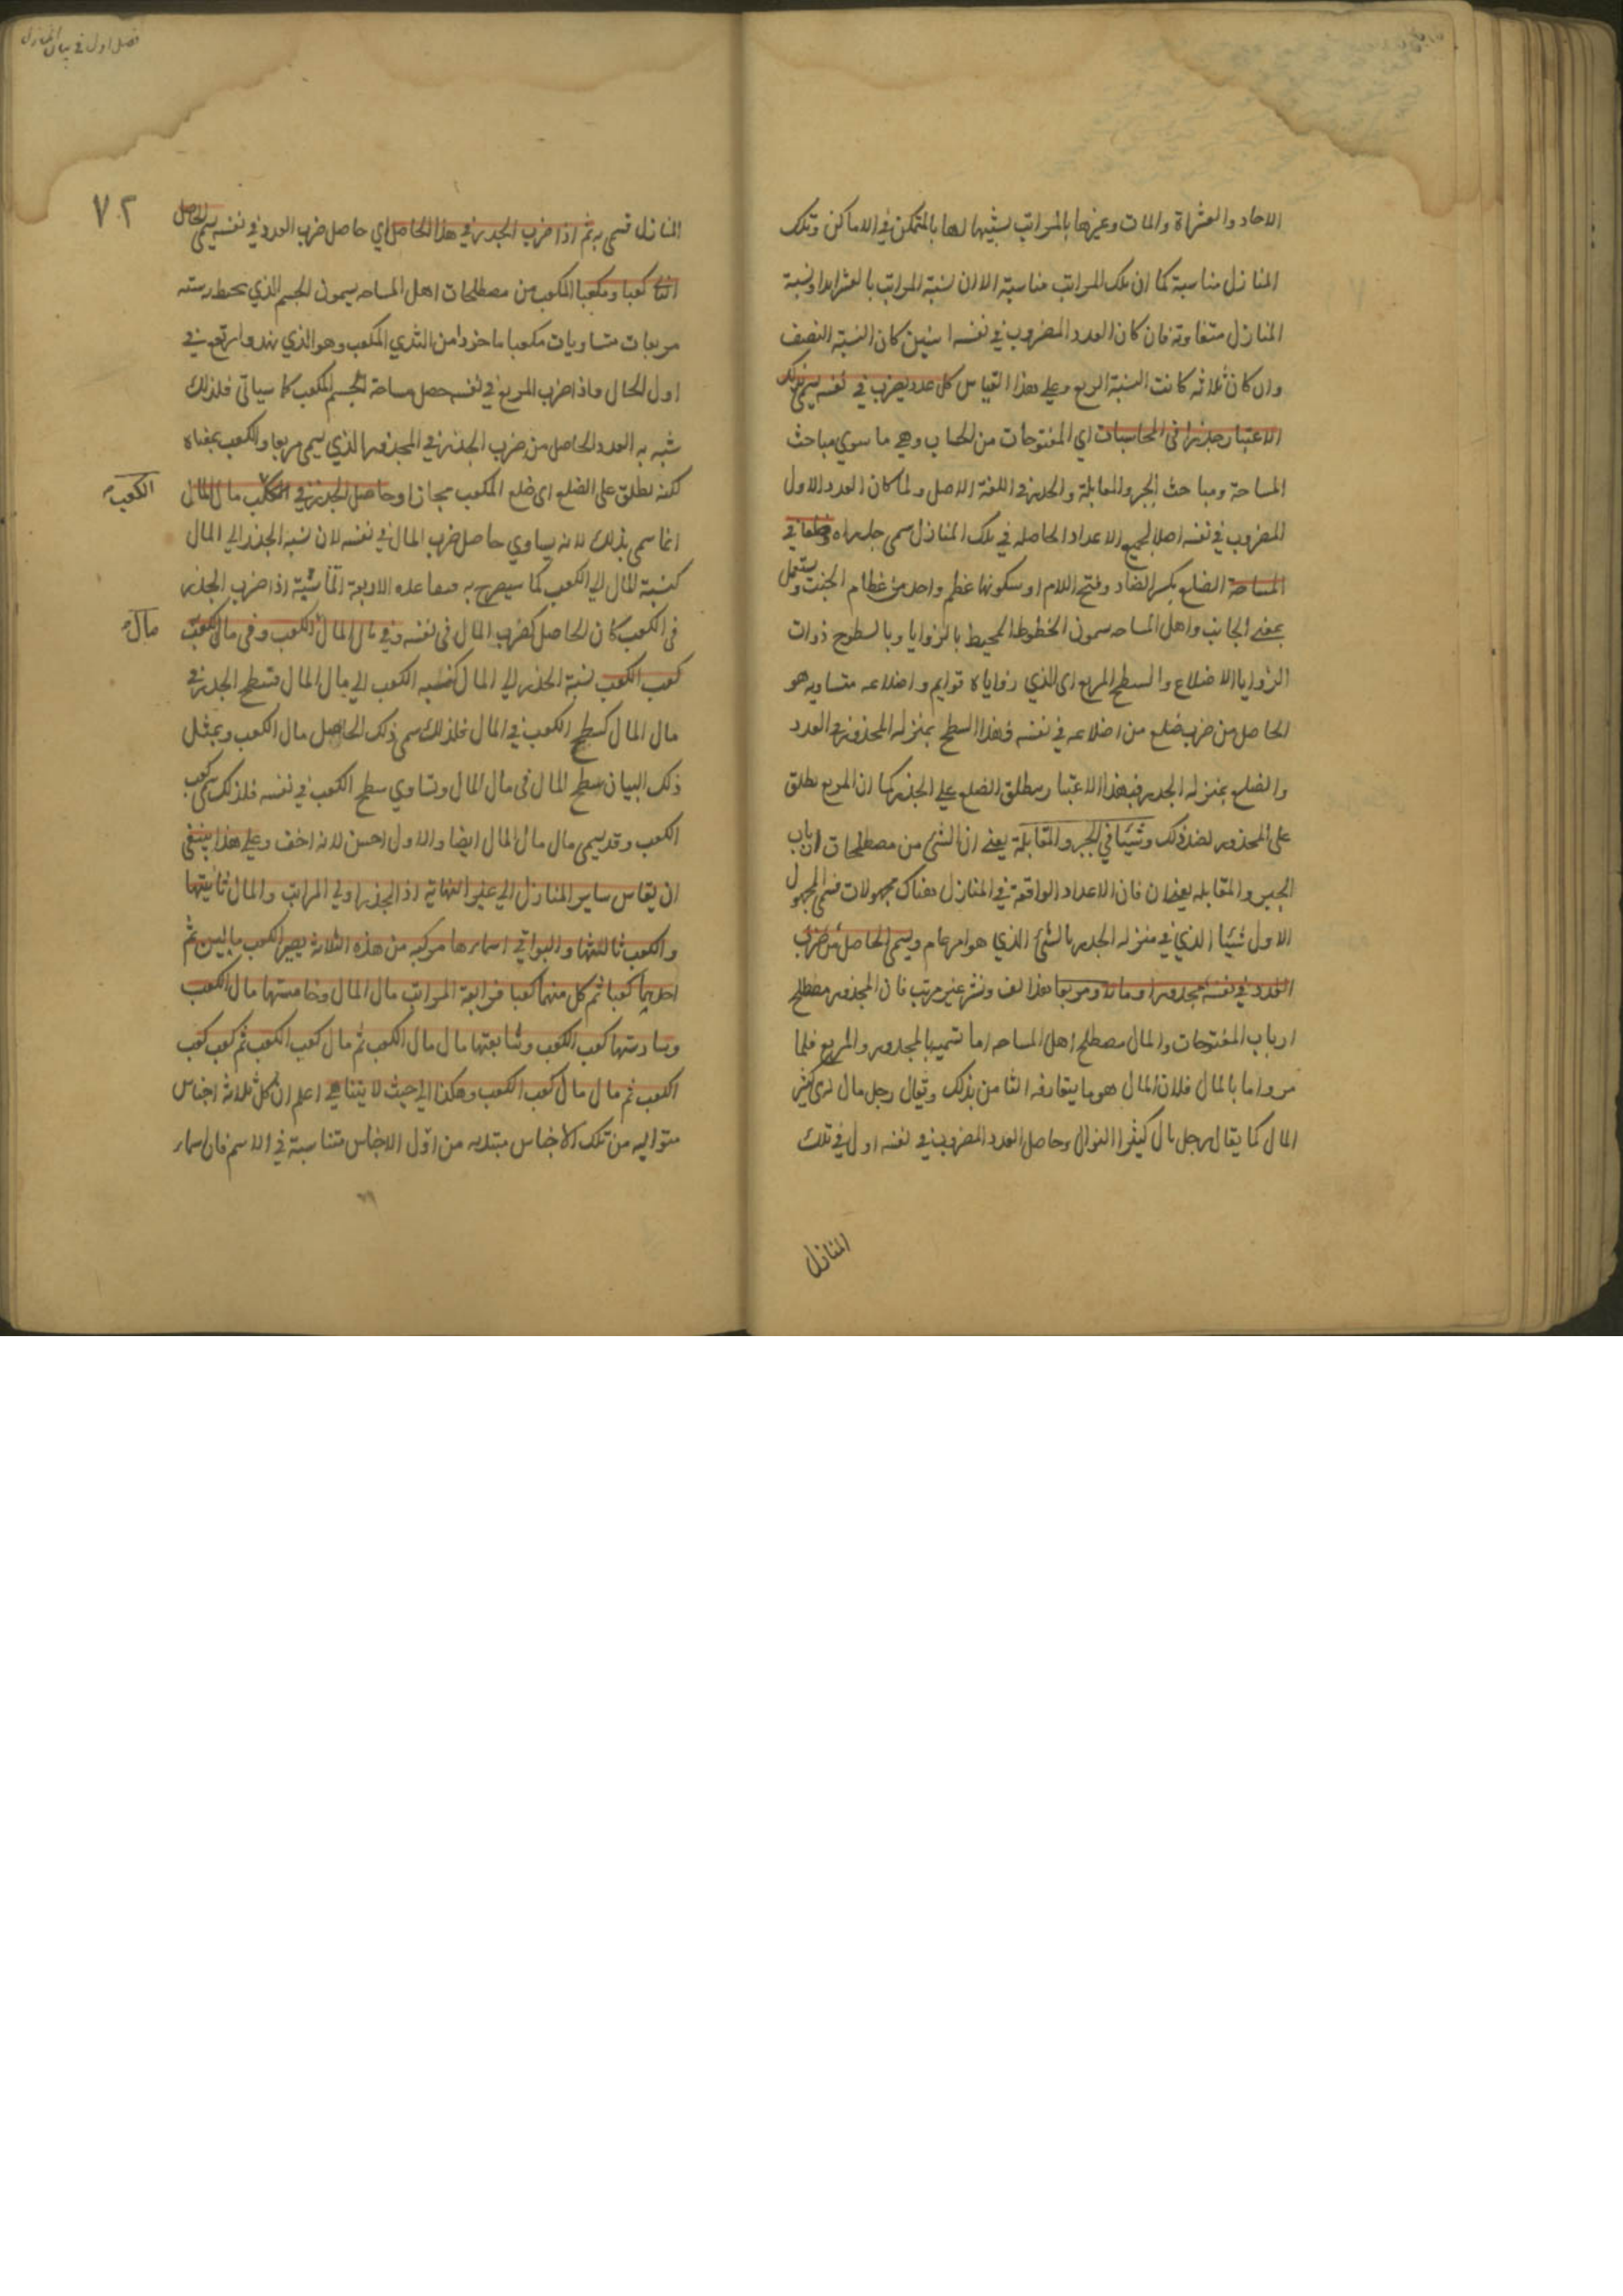 الاحاد والعشراة والمات وغيرها بالمراتب لشبهها لها بالمتمكن في الاماكن وتلك
المنازل مناسبة كما ان تلك المراتب مناسبة الا ان نسبة المراتب بالعشر ابدا ونسبة
المنازل متفاوتة فان كان العدد المضروب في نفسه اثنين كان النسبة النصف
وان كان ثلاثه كانت النسبة الربع وعلى هذا القياس كل عدد يضرب في نفسه يسمى بذلك
الاعتبار جذرا فى المحاسبات اي المفتوحات من الحساب وهي ما سوي مباحث
المساحة ومباحث الجبر والمقابلة والجذر في اللغة الاصل ولما كان العدد الاول
المضروب في نفسه اصلا لجميع الاعداد الحاصله في تلك المنازل سمى جذرا وضلعا في
المساحة الضلع بكسر الضاد وفتح اللام او سكونها عظم واحد من عظام الجنب ويستعمل
بمعنى الجانب واهل المساحه يسمون الخطوط المحيط بالزوايا وبالسطوح ذوات
الزوايا الاضلاع والسطح المربع اى الذي زواياه قوايم واضلاعه متساويه هو
الحاصل من ضرب ضلع من اضلاعه في نفسه فهذا السطح بمنزله المجذور في العدد
والضلع بمنزله الجدر فبهذا الاعتبار يطلق الضلع على الجذر كما ان المربع يطلق
على المجذور لضد ذلك وشيئا في الجبر والمقابلة يعنى ان الشئ من مصطلحات ارباب
الجبر والمقابله فان الاعداد الواقعة في المنازل هناك مجهولات فسمى المجهول
الاول شيئا الذي في منزله الجدر بالشئ الذي هو امر عام ويسمى الحاصل من ضرب
العدد في نفسه مجدورا ومالا ومربعا هذا لف ونشر غير مرتب فان المجذور مصطلح
ارباب المفتوحات والمال مصطلح اهل المساحه اما تسميته بالمجدور والمربع فلما
مر واما بالمال فلان المال هو ما يتعارفه الناس بذلك ويقال رجل مال اى كثير
المال كما يقال رجل نال كثير النوال وحاصل العدد المضروب في نفسه اول في تلك
المنازل
فصل اول في بيان المنازل
٧٢
المنازل فسمى به ثم اذا ضرب الجدر في هذا الحاصل اي حاصل ضرب العدد في نفسه يسمى الحاصل
كعبا ومكعبا المكعب من مصطلحات اهل المساحه يسمون الجسم الذي يحيط به سته
مربعات متساويات مكعبا ماخوذا من الثدي المكعب وهو الذي يبدو ارتفع في
اول الحال واذا ضرب المربع في نفسه حصل مساحة الجسم المكعب كما سياتى فلذلك
شبه به العدد الحاصل من ضرب الجذر في المجذور الذي يسمى مربعا والكعب بمعناه
لكنه يطلق على الضلع اى ضلع المكعب مجازا وحاصل الجدر في الكعب مال المال
الكعب
انما سمى بذلك لانه يساوي حاصل ضرب المال في نفسه لان نسبة الجذر الي المال
كنسبة المال الي الكعب كما سيصرح به فهذه الاربعة متناسبة اذا ضرب الجذر
فى الكعب كان الحاصل كضرب المال فى نفسه وفي مال المال مال الكعب وفى مال الكعب
مال
كعب الكعب نسبة الجذر الي المال كنسبه الكعب الي مال المال فسطح الجذر في
مال المال كسطح الكعب في المال فلذلك سمى ذلك الحاصل مال الكعب وبمثل
ذلك البيان سطح المال فى مال المال وتساوي سطح الكعب في نفسه فلذلك سمى كعب
الكعب وقد يسمى مال مال المال ايضا والاول احسن لانه اخف وعلى هذا ينبغى
ان يقاس ساير المنازل الي غير النهاية اذ الجذر اولي المراتب والمال ثانيتها
والكعب ثالثتها والبواقي اسماءها مركبه من هذه الثلاثة يصير الكعب مالين ثم
احديهما كعبا ثم كل منهما كعبا فرابعة المراتب مال المال وخامستها مال الكعب
وسادستها كعب الكعب وسابعتها مال مال الكعب ثم مال كعب الكعب ثم كعب كعب
الكعب ثم مال مال كعب الكعب وهكذا الي حيث لا يتناهى اعلم ان كل ثلاثة اجناس
متواليه من تلك الاجناس مبتديه من اوّل الاجناس متناسبة في الاسم فان اسماء